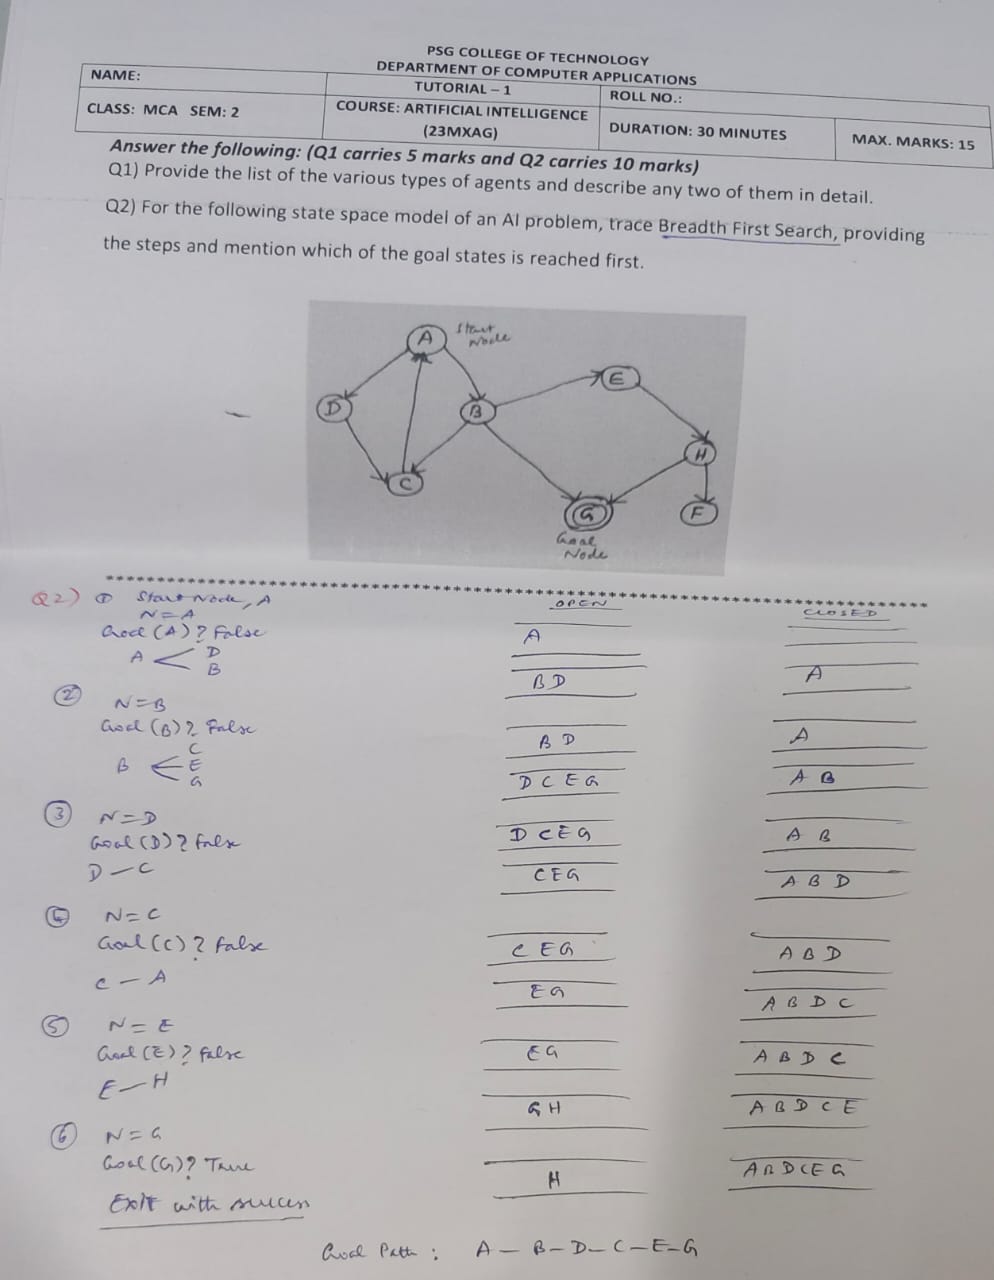 PSG COLLEGE OF TECHNOLOGY
DEPARTMENT OF COMPUTER APPLICATIONS
NAME:
TUTORIAL – 1
ROLL NO.:
CLASS: MCA SEM: 2
COURSE: ARTIFICIAL INTELLIGENCE
(23MXAG)
DURATION: 30 MINUTES
MAX. MARKS: 15
Answer the following: (Q1 carries 5 marks and Q2 carries 10 marks)
Q1) Provide the list of the various types of agents and describe any two of them in detail.
Q2) For the following state space model of an AI problem, trace Breadth First Search, providing
the steps and mention which of the goal states is reached first.
A
Start
Node
D
B
E
C
H
G
F
Goal
Node
********************************************************************************
Q2) ① Start Node, A
OPEN
CLOSED
N=A
Goal (A)? False
A
A < D
B
B D
A
② N=B
Goal (B)? False
B D
A
B < C
E
G
D C E G
A B
③ N=D
Goal (D)? False
D C E G
A B
D — C
C E G
A B D
④ N=C
Goal (C)? False
C E G
A B D
C — A
E G
A B D C
⑤ N=E
Goal (E)? False
E G
A B D C
E — H
G H
A B D C E
⑥ N=G
Goal (G)? True
H
A B D C E G
Exit with success
Goal Path : A — B — D — C — E — G